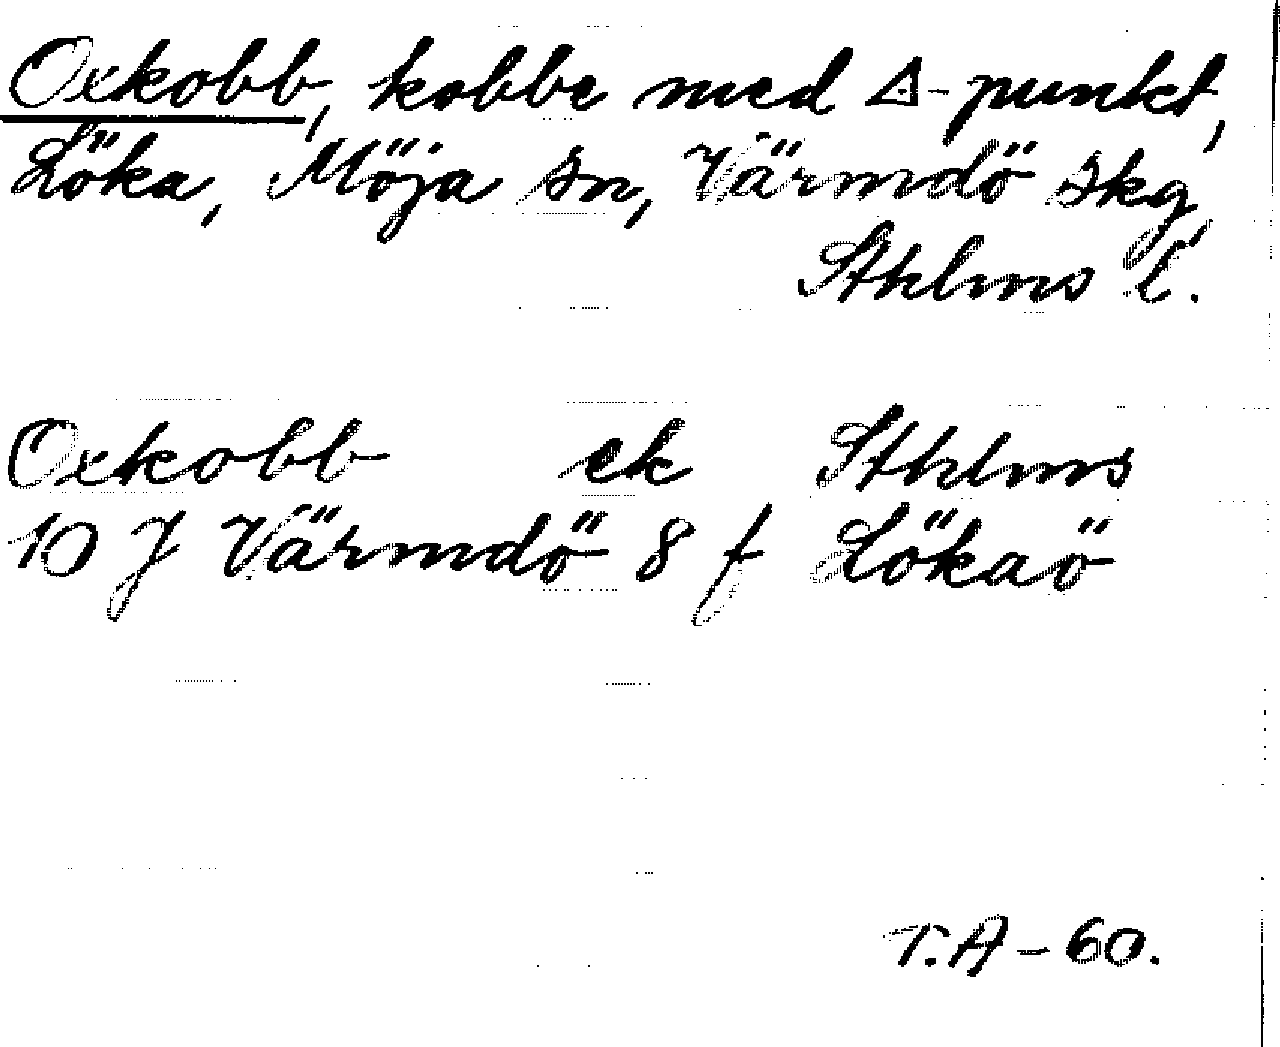 Oxkobb, kobbe med △-punkt,
Löka, Möja sn, Värmdö skg
Sthlms l.
Oxkobb ek Sthlms
10 J Värmdö 8 f Lökaö
T.A-60.